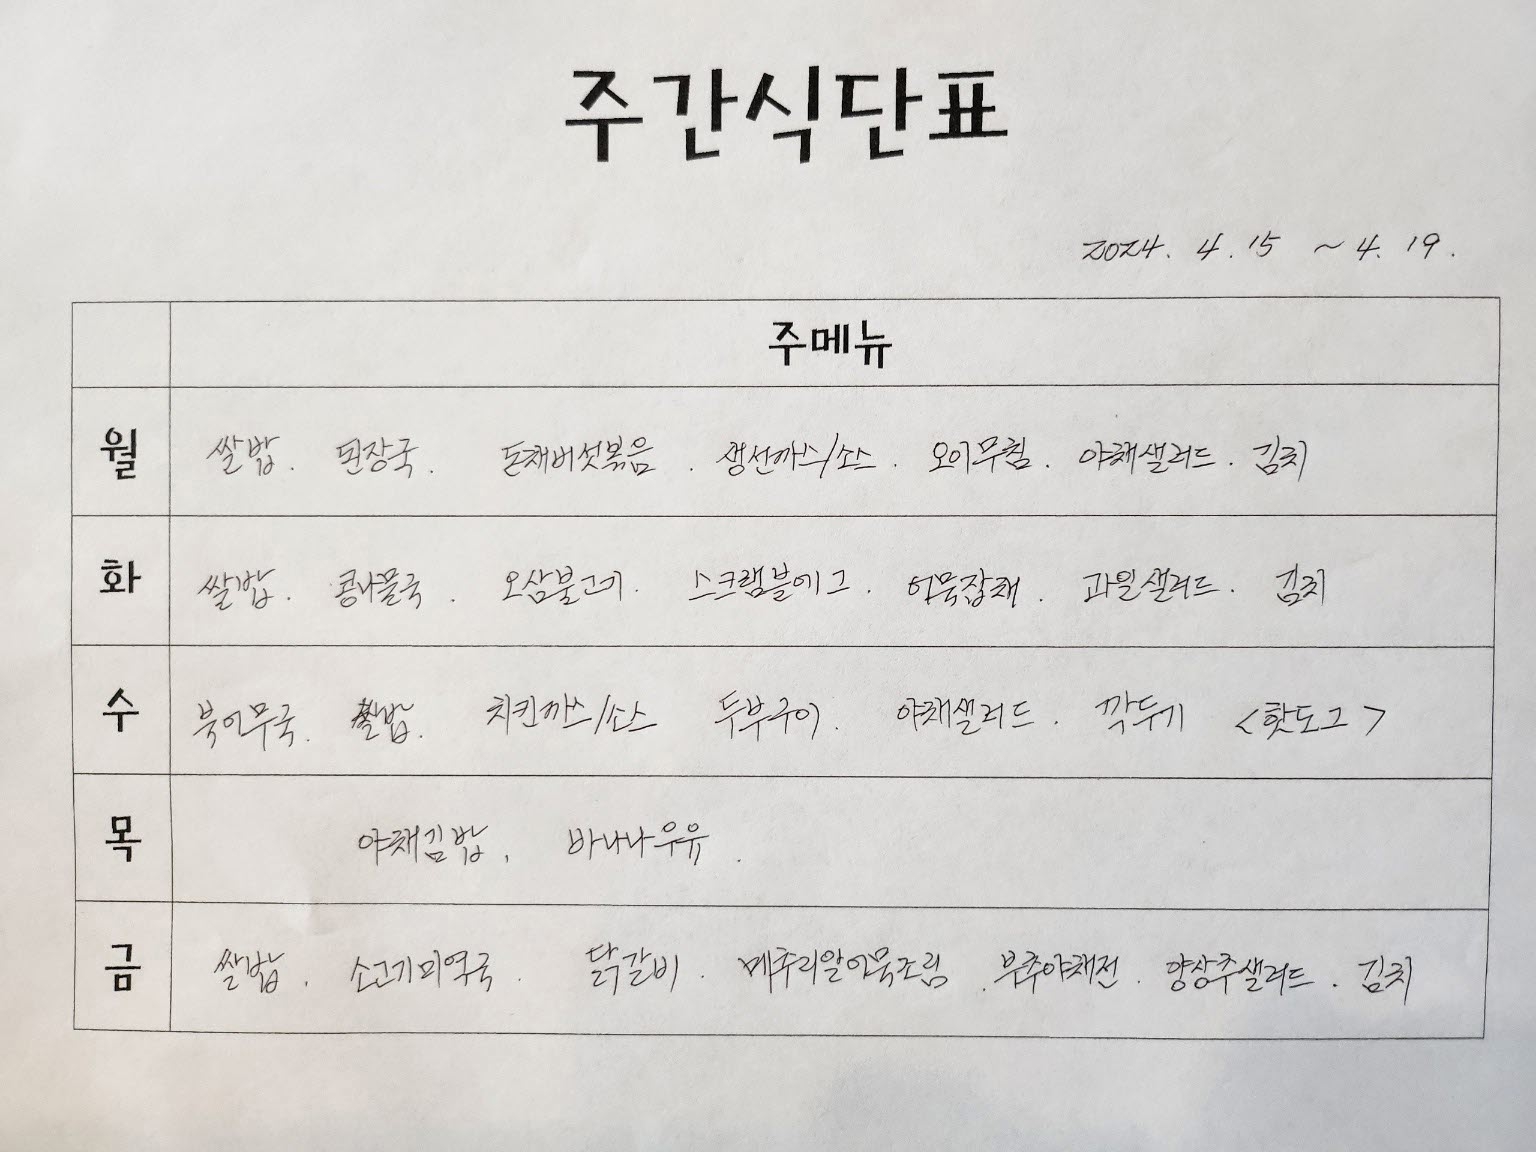 주간식단표
2024. 4. 15 ~ 4. 19.
주메뉴
월 쌀밥. 된장국. 돈채버섯볶음. 생선까스/소스. 오이무침. 야채샐러드. 김치
화 쌀밥. 콩나물국. 오삼불고기. 스크램블에그. 어묵잡채. 과일샐러드. 김치
수 북어무국. 찰밥. 치킨까스/소스 두부구이. 야채샐러드. 깍두기 <핫도그>
목 야채김밥. 바나나우유.
금 쌀밥. 소고기미역국. 닭갈비. 메추리알어묵조림. 부추야채전. 양상추샐러드. 김치